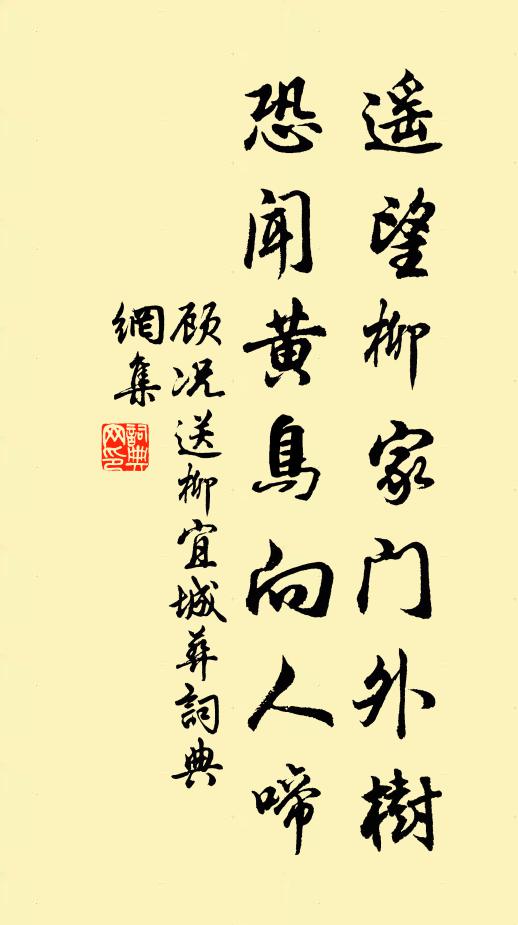 遥望柳家门外樹
恐闻黄鳥向人啼
顾况送柳宜城葬詞典
網集
詞典网印